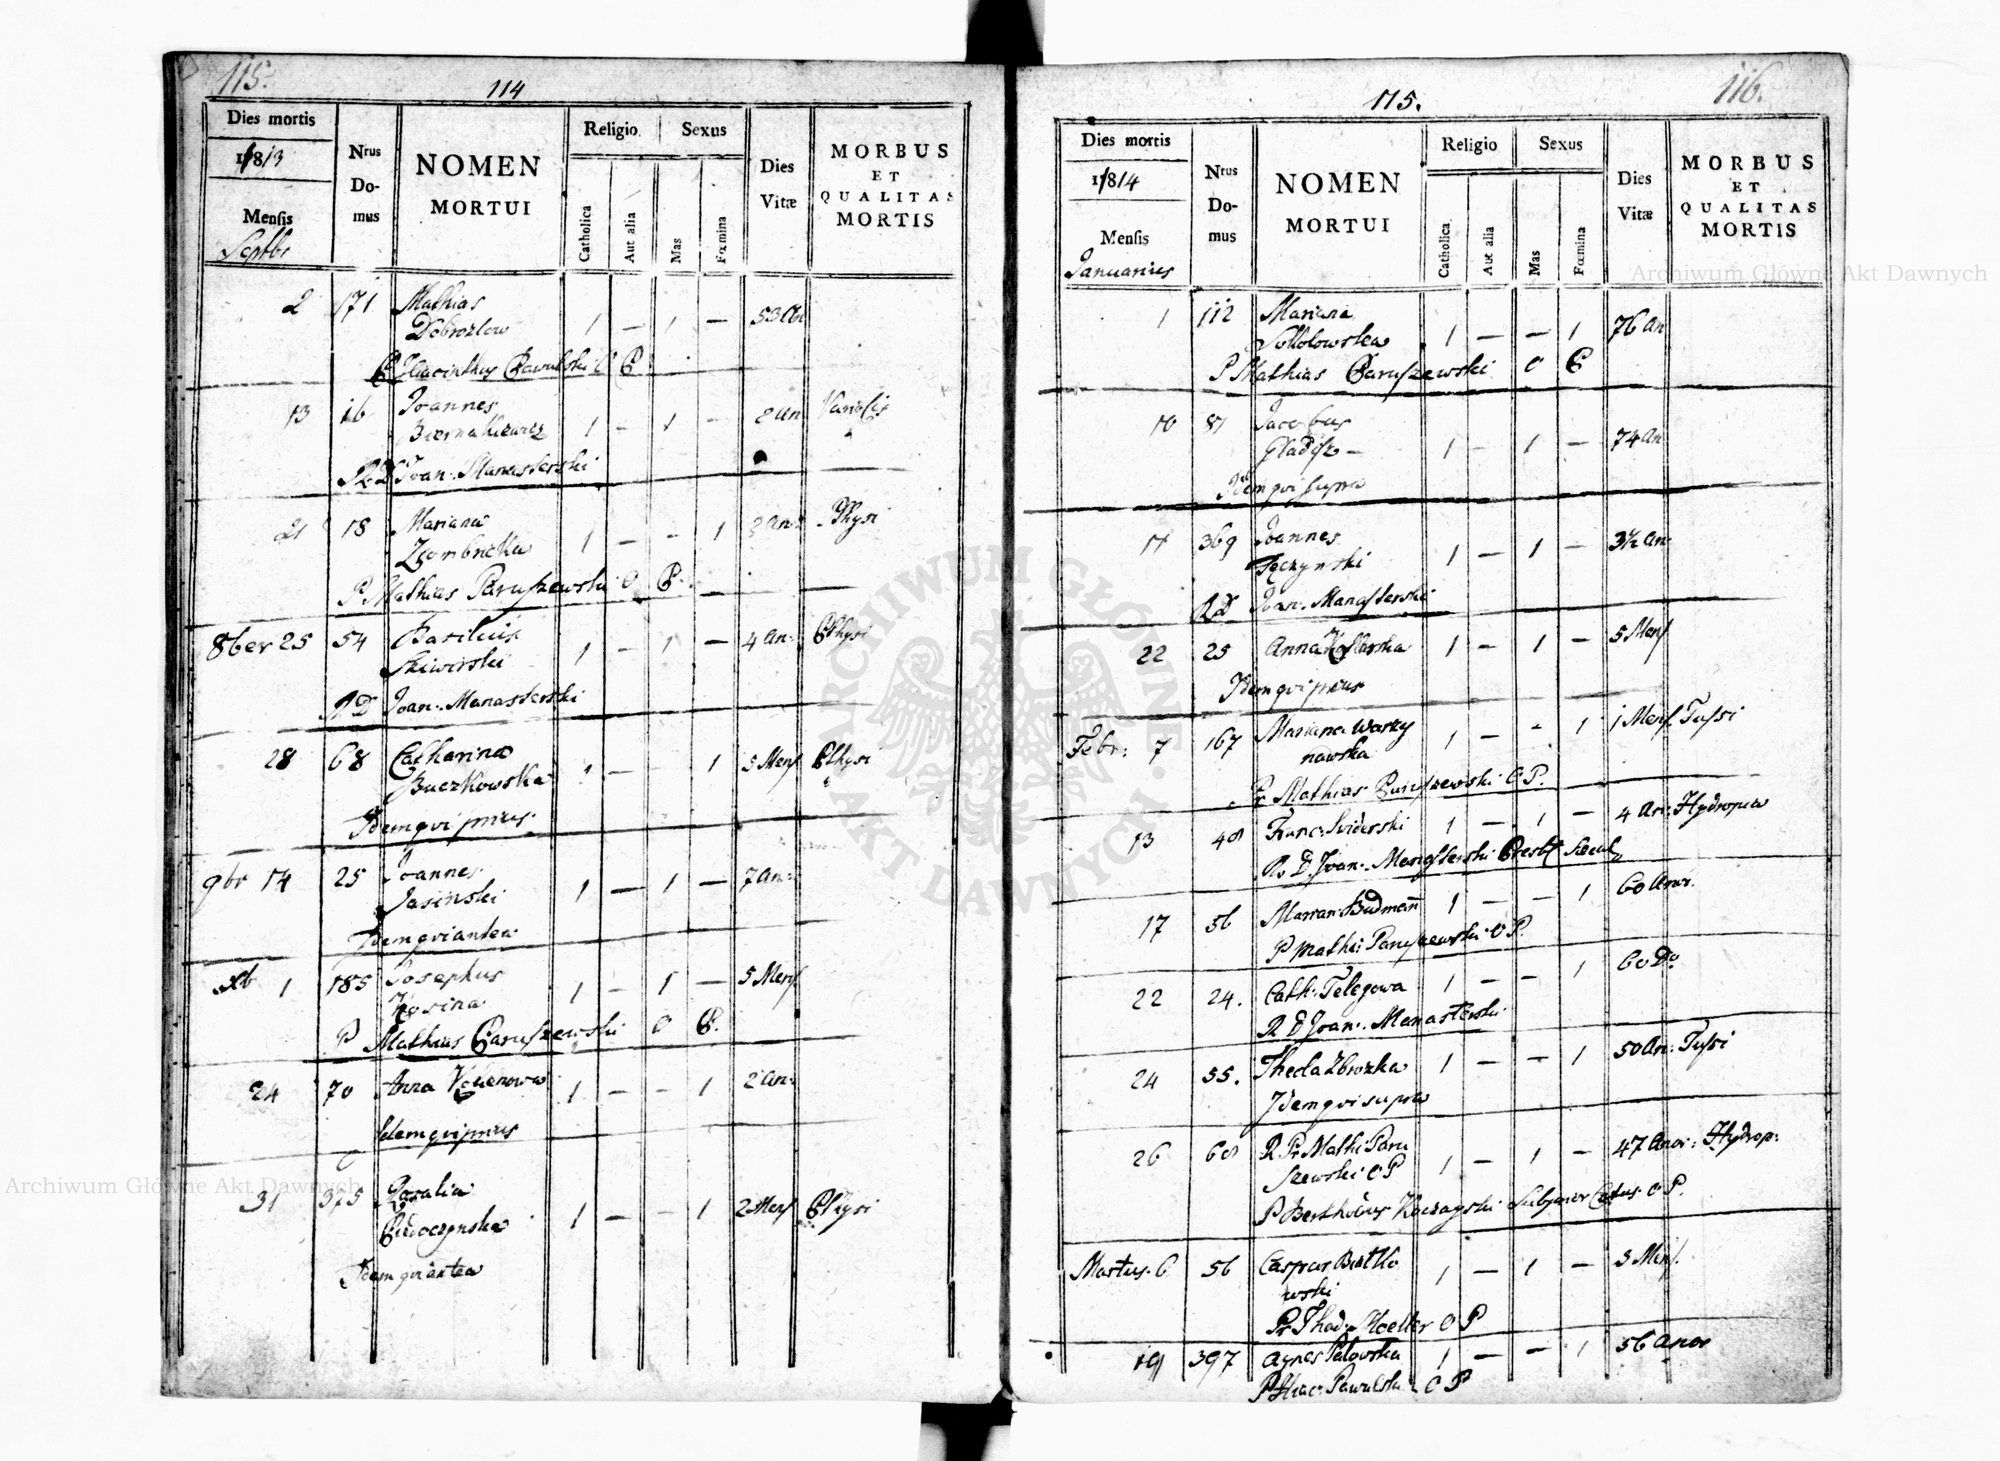 115.
114
Dies mortis
1813
Mensis
Septbr
Nrus Domus
NOMEN MORTUI
Religio
Catholica
Aut alia
Sexus
Mas
Fœmina
Dies Vitæ
MORBUS ET QUALITAS MORTIS
2 171 Mathias 53 An
Dobrozlow 1 — 1 —
P Hiacinthus Pawulski O P
13 16 Joannes 2 An Variolis
Biernakiewicz 1 — 1 —
R D Joan: Manasterski
21 18 Mariana 2 An: Pthysi
1 — - 1
P Mathias Paruszewski O P.
8ber 25 54 Basilius 4 An: Pthysi
Skiwirski 1 — 1 —
R D Joan: Manasterski
28 68 Catharina 5 Mens Pthysi
Buczkowska 1 — - 1
Idem qvi prius
9br 14 25 Joannes 7 An:
Jasinski 1 — 1 —
Idem qvi antea
Xb 1 185 Josephus 5 Mens
Kosina 1 - 1 —
P Mathias Paruszewski O P.
24 70 Anna 1 - - 1 2 An:
Idem qvi prius
31 375 Rosalia 2 Mens Pthysi
1 — - 1
Idem qvi antea
116.
115.
Dies mortis
1814
Mensis
Januarius
Nrus Domus
NOMEN MORTUI
Religio
Catholica
Aut alia
Sexus
Mas
Fœmina
Dies Vitæ
MORBUS ET QUALITAS MORTIS
1 112 Mariana 76 An
Sokolowska 1 — — 1
P Mathias Paruszewski O P
10 87 Jacobus 74 An
Gladysz 1 — 1 —
Idem qvi supra
11 369 Joannes 3½ An
Tęczynski 1 — 1 —
R D Joan: Manasterski
22 25 Anna 1 — 1 — 5 Mens
Idem qvi prius
Febr: 7 167 Mariana Warzy 1 Mens Tussi
nawska 1 — - 1
Pr Mathias Paruszewski O P.
13 48 Franc: Sviderski 1 — 1 — 4 An: Hydropica
R. D. Joan: Manasterski Presb
17 56 Marian: Budmañ 1 — — 1 60 Anor.
P Math: Paruszewski O P
22 24. Cath: Telegowa 1 — — 1 60 Do
R D Joan: Manasterski
24 55. Thecla Zbrozka 1 — — 1 50 An: Tussi
Idem qvi supra
26 68 R Pr Math: Paru 47 Anor: Hydrop:
szewski O P 1 — 1 —
O P.
Martius. 6 56 Caspar Bialko 5 Mens.
wski 1 — 1 —
Pr Thad: Moeller O P
19 397 Agnes Palowska 1 — — 1 56 Anor
P Hiac: Pawulski O P
Archiwum Główne Akt Dawnych
Archiwum Główne Akt Dawnych
ARCHIWUM GŁÓWNE AKT DAWNYCH